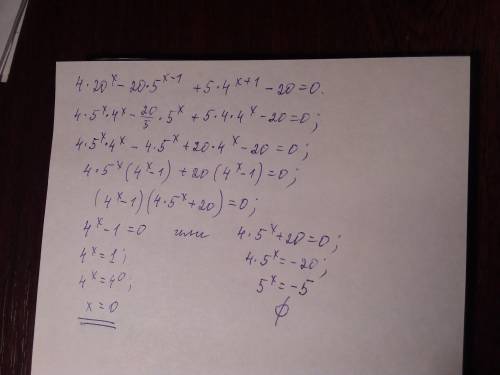 4·20^x − 20·5^(x-1) + 5·4^(x+1) − 20 = 0.
4·5^x·4^x − 20/5·5^x + 5·4·4^x − 20 = 0;
4·5^x·4^x − 4·5^x + 20·4^x − 20 = 0;
4·5^x(4^x−1) + 20(4^x−1) = 0;
(4^x−1)(4·5^x+20) = 0;
4^x−1=0 или 4·5^x+20=0;
4^x=1; 4·5^x=−20;
4^x=4^0; 5^x=−5
x=0 ∅